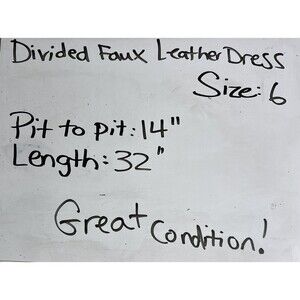 Divided Faux Leather Dress
Size: 6
Pit to pit: 14"
Length: 32"
Great Condition!